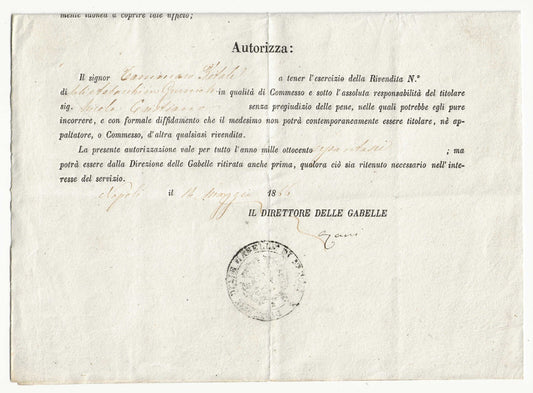 mente idonea a coprire tale ufficio;
Autorizza:
Il signor Natale a tener l'esercizio della Rivendita N.°
di in qualità di Commesso e sotto l'assoluta responsabilità del titolare
sig. senza pregiudizio delle pene, nelle quali potrebbe egli pure
incorrere, e con formale diffidamento che il medesimo non potrà contemporaneamente essere titolare, nè ap-
paltatore, o Commesso, d'altra qualsiasi rivendita.
La presente autorizzazione vale per tutto l'anno mille ottocento ; ma
potrà essere dalla Direzione delle Gabelle ritirata anche prima, qualora ciò sia ritenuto necessario nell'inte-
resse del servizio.
Napoli il 14 maggio 186
IL DIRETTORE DELLE GABELLE